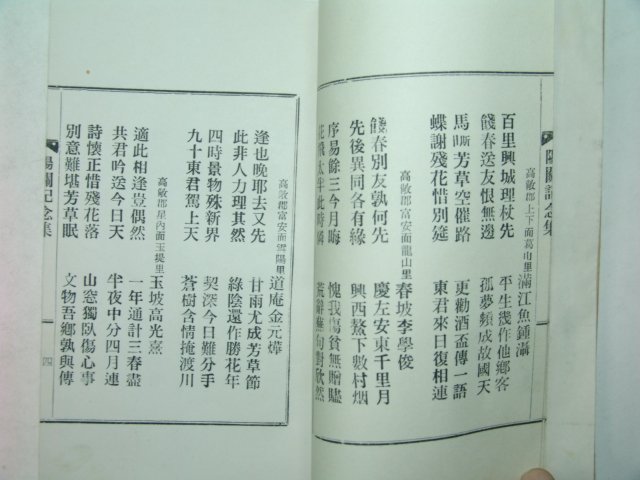 陽關記念集
高敞郡上下面葛山里 滿江魚鍾灄
百里興城理杖先 平生幾作他鄉客
餞春送友恨無邊 孤夢頻成故國天
馬嘶芳草空催路 更勸酒盃傳一語
蝶謝殘花惜別筵 東君來日復相連
高敞郡富安面龍山里 春坡李學俊
餞春別友孰何先 慶左安東千里月
先後異同各有緣 興西鰲下數村烟
序易餘三今月晦 愧我傷貧無贈贐
花飛太半此時憐 荒辭無句對欣然
高敞郡富安面雲陽里 道庵金元燁
逢也晚耶去又先 甘雨尤成芳草節
此非人力理其然 綠陰還作勝花年
四時景物殊新界 契深今日難分手
九十東君駕上天 蒼樹含情掩渡川
高敞郡星內面玉堤里 玉坡高光熹
適此相逢豈偶然 一年通計三春盡
共君吟送今日天 半夜中分四月連
詩懷正惜殘花落 山窓獨臥傷心事
別意難堪芳草眠 文物吾鄉孰與傳
陽關記念集 四